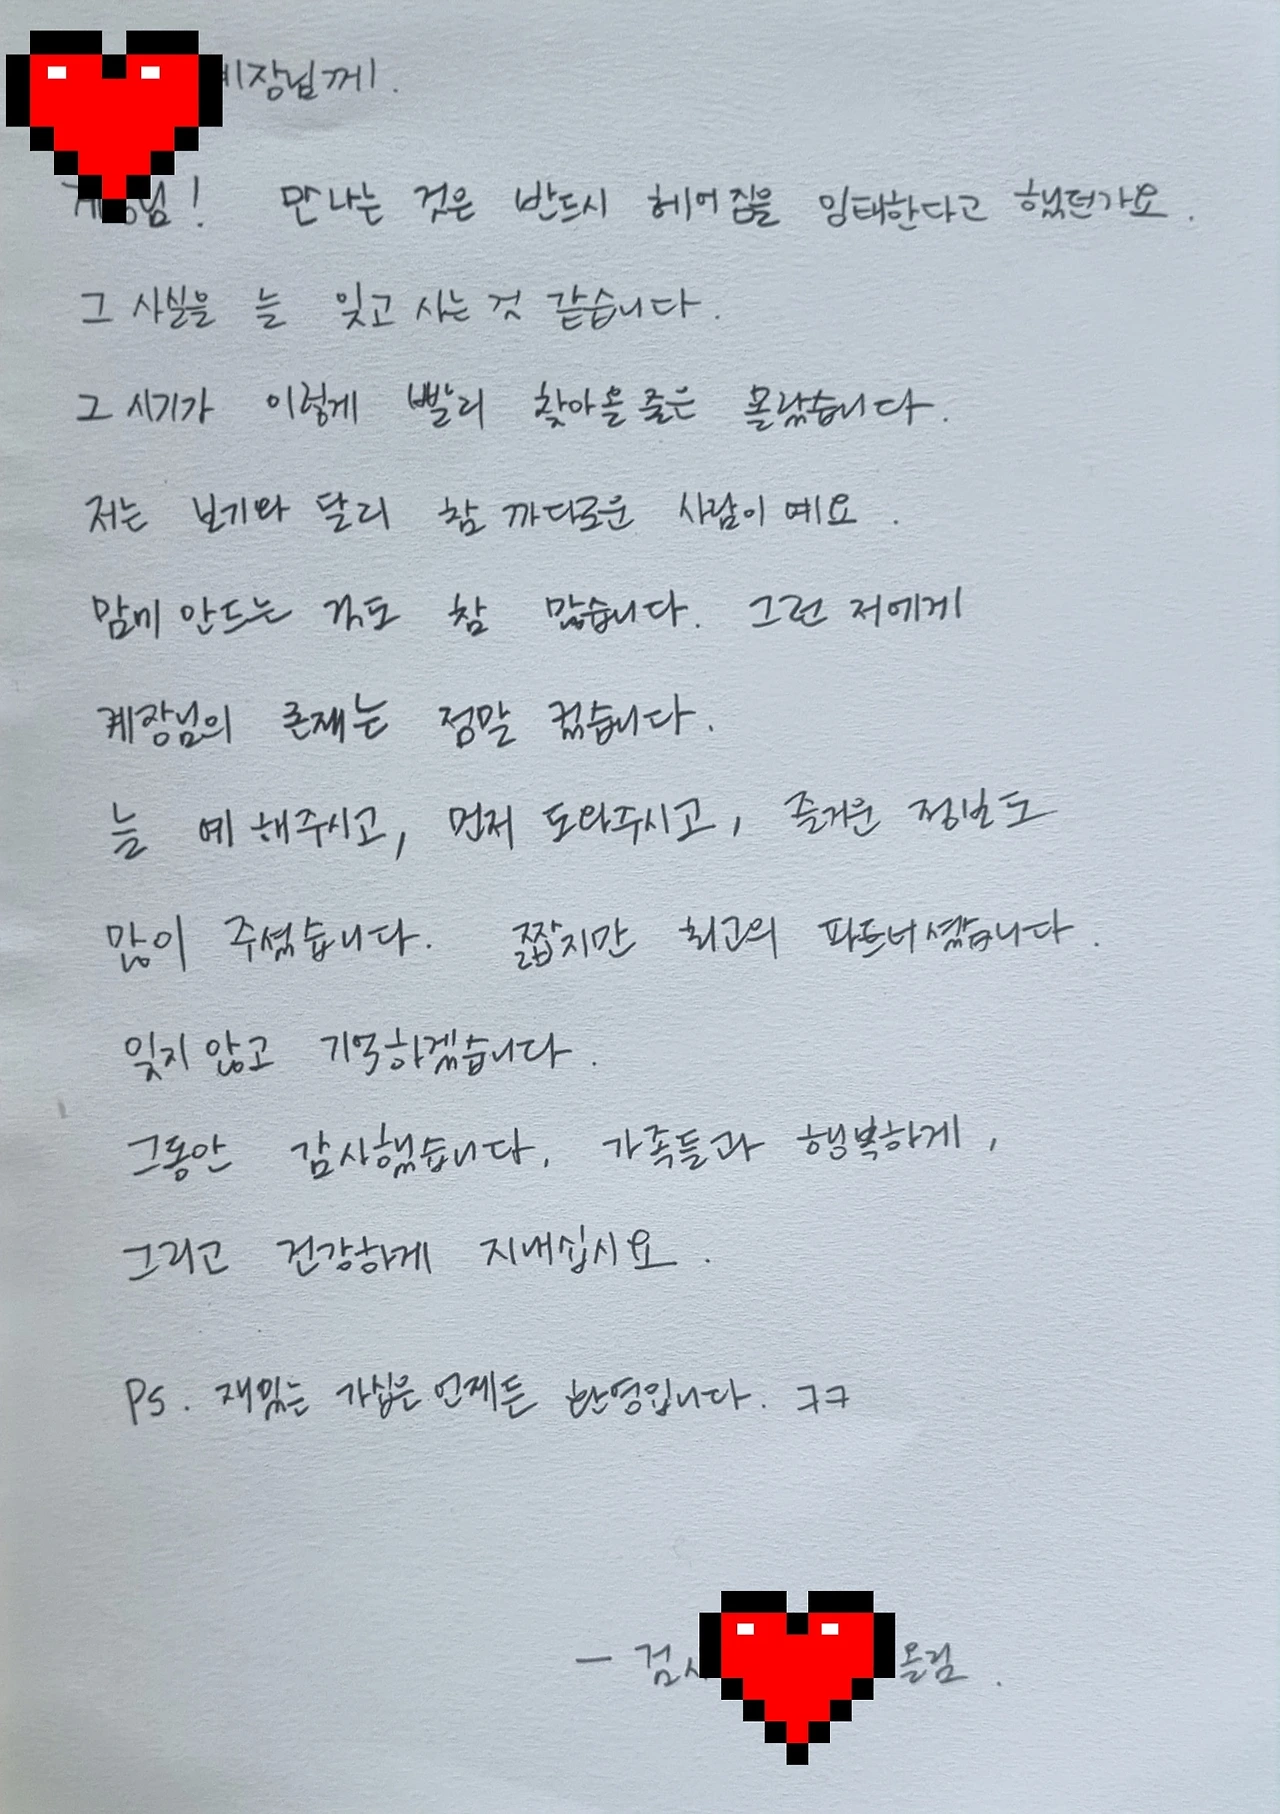 계장님께.
계장님! 만나는 것은 반드시 헤어짐을 잉태한다고 했던가요.
그 사실을 늘 잊고 사는 것 같습니다.
그 시기가 이렇게 빨리 찾아올 줄은 몰랐습니다.
저는 보기와 달리 참 까다로운 사람이예요.
맘에 안드는 것도 참 많습니다. 그런 저에게
계장님의 존재는 정말 컸습니다.
늘 예해주시고, 먼저 도와주시고, 즐거운 정보도
많이 주셨습니다. 짧지만 최고의 파트너셨습니다.
잊지 않고 기억하겠습니다.
그동안 감사했습니다. 가족들과 행복하게,
그리고 건강하게 지내십시요.
Ps. 재밌는 가십은 언제든 환영입니다. ㅋㅋ
- 검사 올림.